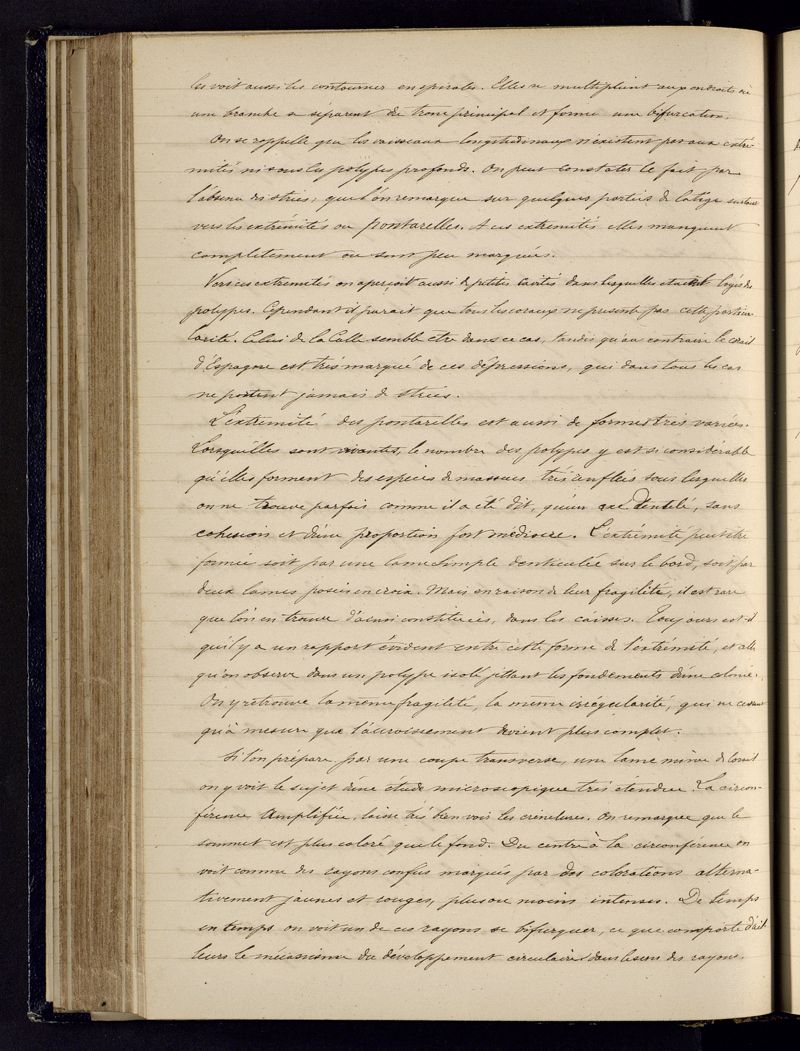 les voit aussi les contourner en spirales. Elles se multiplient aux endroits où
une branche se séparent du tronc principal et forme une bifurcation.
On se rappelle que les vaisseaux longitudinaux n'existent pas aux extré-
mités ni sous les polypes profonds. On peut constater le fait par
l'absence des stries, que l'on remarque sur quelques parties de la tige surtout
vers les extrémités ou pontarelles. A ces extrémités elles manquent
complètement ou sont peu marquées.
Vers ces extrémités on aperçoit aussi de petites cavités dans lesquelles etaient logés des
polypes. Cependant il parait que tous les coraux ne presente pas cette particu-
larité. Celui de la Calle semble etre dans ce cas, tandis qu'au contraire le corail
d'Espagne est très marqué de ces dépressions, qui dans tous les cas
ne portent jamais de stries.
L'extremité des pontarelles est aussi de formes très variées.
Lorsqu'elles sont vivantes, le nombre des polypes y est si considérable
qu'elles forment des especes de massues très enflées sous lesquelles
on ne trouve parfois comme il a été dit, qu'un axe dentelé, sans
cohesion et d'une proportion fort médiocre. L'extrémité peut etre
formée soit par une lame simple denticulée sur le bord, soit par
deux lames posées en croix. Mais en raison de leur fragilité, il est rare
que l'on en trouve d'ainsi constituées, dans les caisses. Toujours est-il
qu'il y a un rapport évident entre cette forme de l'extrémité, et celle
qu'on observe dans un polype isolé jettant les fondements d'une colonie.
On y retrouve la même fragilité, la même irrégularité, qui ne cessent
qu'à mesure que l'accroissement devient plus complet.
Si l'on prépare par une coupe transverse, une lame mince de corail
on y voit le sujet d'une étude microscopique très étendue. La circon-
férence amplifiée, laisse très bien voir les crénelures. On remarque que le
sommet est plus coloré que le fond. Du centre à la circonférence on
voit comme des rayons confus marqués par des colorations alterna-
tivement jaunes et rouges, plus ou moins intenses. De temps
en temps on voit un de ces rayons se bifurquer, ce que comporte d'ail
leurs le mécanisme du développement circulaire dans le sens des rayons.